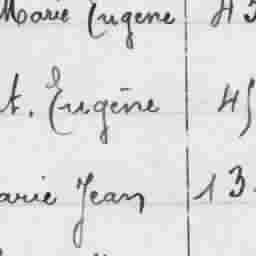 Marie Eugène 45
t. Eugène 45
arie Jean 13